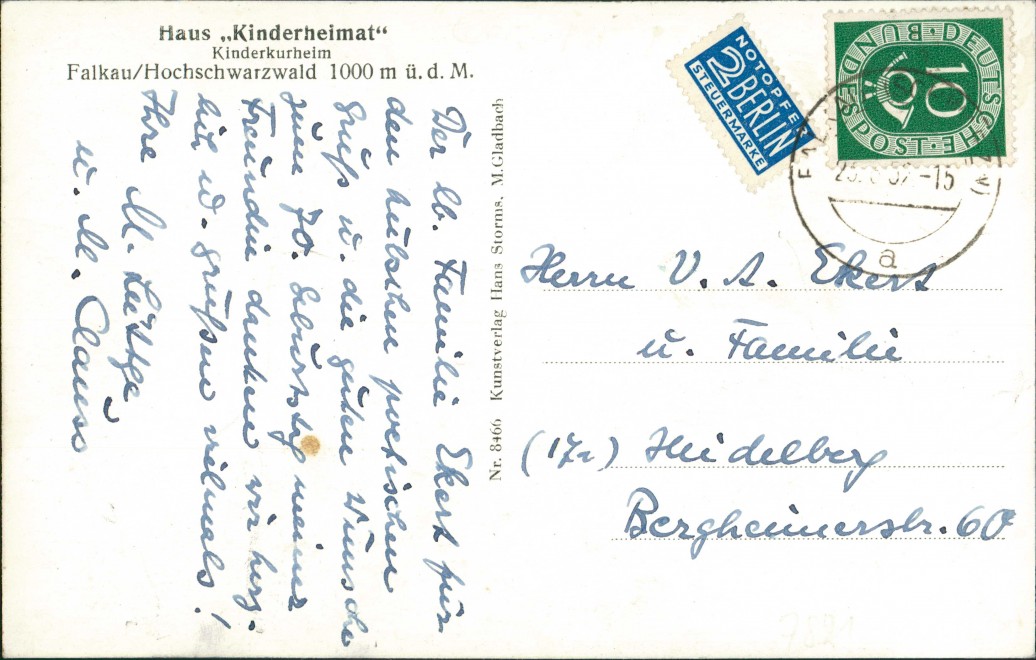 Haus „Kinderheimat“
Kinderkurheim
Falkau/Hochschwarzwald 1000 m ü. d. M.
Der lb. Familie Ekert für
den hübschen poetischen
Gruß u. die guten Wünsche
zum 70. Geburtstag meiner
Freundin danken wir herz-
lich u. grüßen vielmals!
Ihre M. Lüttge
u. M. Clauss
Nr. 8466 Kunstverlag Hans Storms, M.Gladbach
NOTOPFER
2 BERLIN
STEUERMARKE
DEUTSCHE BUNDESPOST
10
-15
a
Herrn V. A. Ekert
u. Familie
(17a) Heidelberg
Bergheimerstr. 60